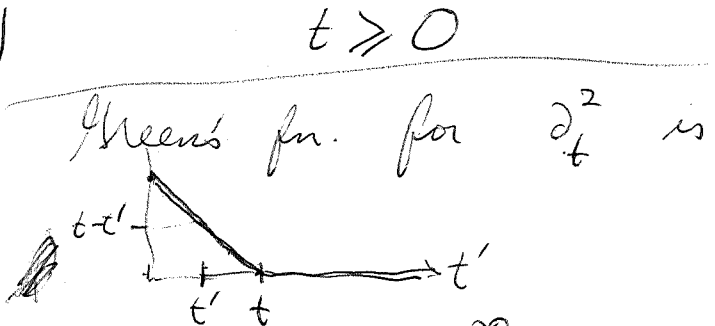 t ⩾ 0
Green's fn. for ∂_t^2 is
t-t'
t'
t' t